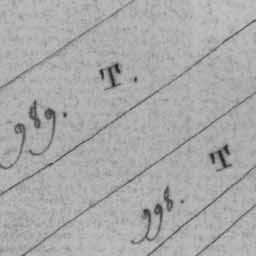 989. T.
998. T